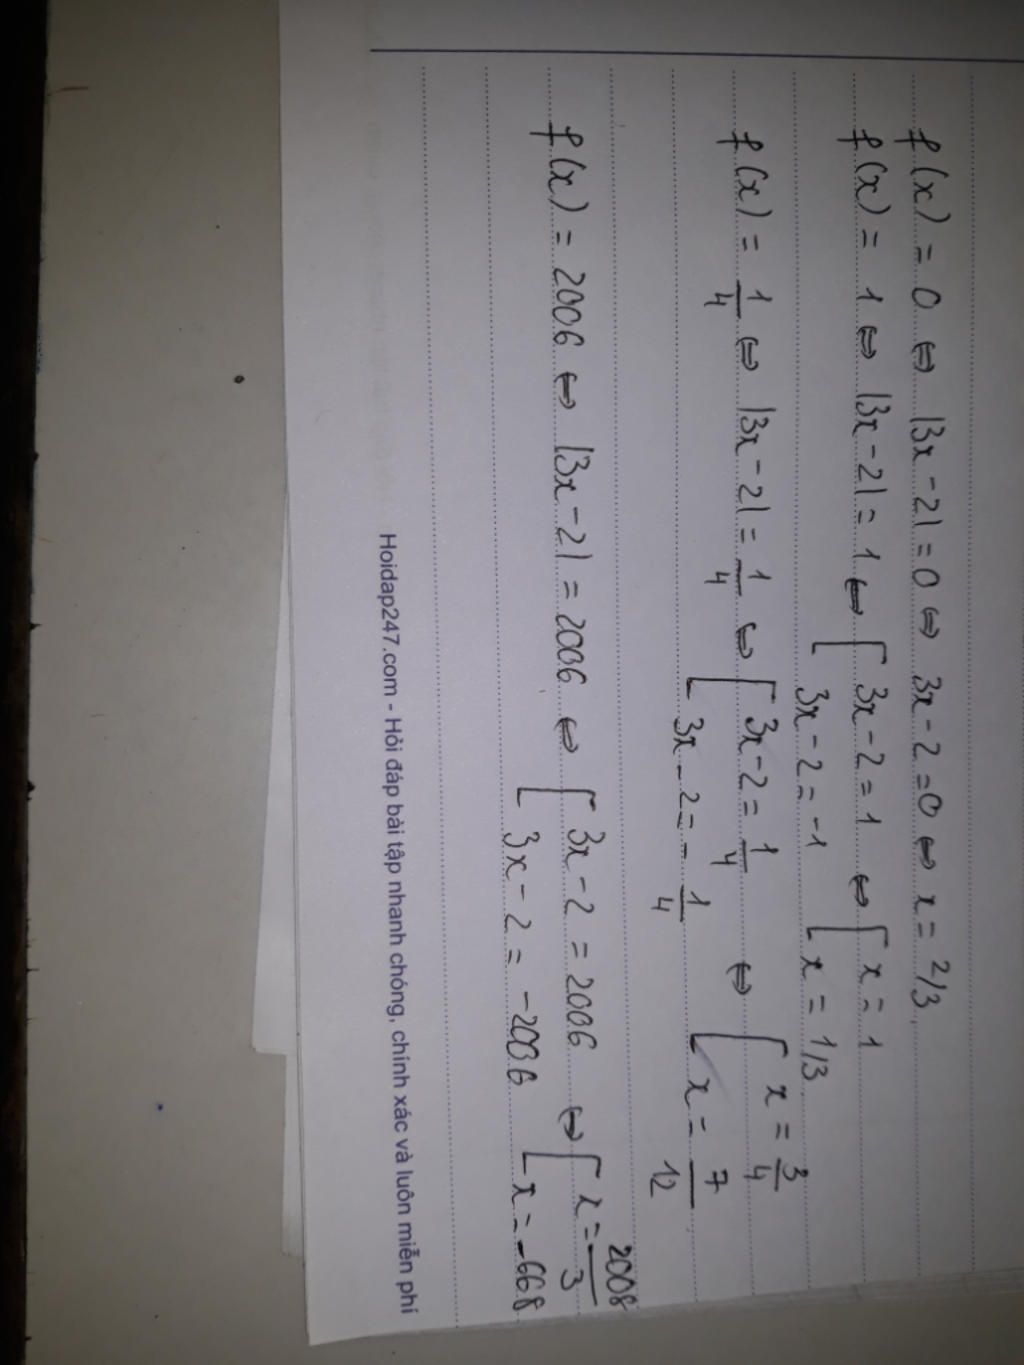 f(x) = 0 ⇔ |3x - 2| = 0 ⇔ 3x - 2 = 0 ⇔ x = 2/3
f(x) = 1 ⇔ |3x - 2| = 1 ⇔ [ 3x - 2 = 1 ⇔ [ x = 1
3x - 2 = -1 [ x = 1/3
f(x) = 1/4 ⇔ |3x - 2| = 1/4 ⇔ [ 3x - 2 = 1/4 ⇔ [ x = 3/4
3x - 2 = - 1/4 x = 7/12
f(x) = 2006 ⇔ |3x - 2| = 2006 ⇔ [ 3x - 2 = 2006 ⇔ [ x = 2008/3
3x - 2 = -2006 x = -668
Hoidap247.com - Hỏi đáp bài tập nhanh chóng, chính xác và luôn miễn phí